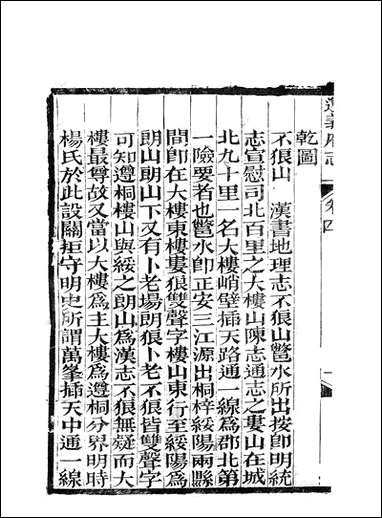 遵義府志 卷四 一
乾圖
不狼山 漢書地理志不狼山鄨水所出按卽明統
志宣慰司北百里之大樓山陳志通志之婁山在城
北九十里一名大樓峭壁插天路通一線爲郡北第
一險要者也鄨水卽正安三江源出桐梓綏陽兩縣
間卽在大樓東樓婁狼雙聲字樓山東行至綏陽爲
朗山朗山下又有卜老場朗狼卜老不狼皆雙聲字
可知遵桐樓山與綏之朗山爲漢志不狼無疑而大
樓最尊故又當以大樓爲主大樓爲遵桐分界明時
楊氏於此設關拒守明史所謂萬峯插天中通一線